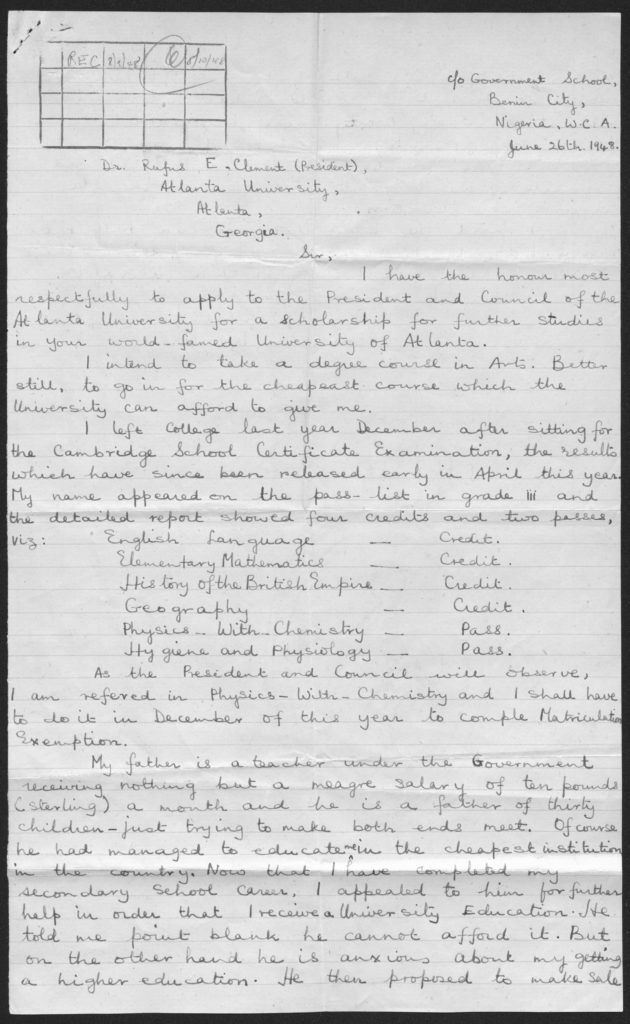 REC 8/9/48 6/10/48
c/o Government School,
Benin City,
Nigeria, W.C.A.
June 26th. 1948.
Dr. Rufus E. Clement (President),
Atlanta University,
Atlanta,
Georgia.
Sir,
I have the honour most
respectfully to apply to the President and Council of the
Atlanta University for a scholarship for further studies
in your world-famed University of Atlanta.
I intend to take a degree course in Arts. Better
still, to go in for the cheapeast course which the
University can afford to give me.
I left College last year December after sitting for
the Cambridge School Certificate Examination, the results
which have since been released early in April this year.
My name appeared on the pass-list in grade iii and
the detailed report showed four credits and two passes,
viz: English Language — Credit.
Elementary Mathematics — Credit.
History of the British Empire — Credit.
Geography — Credit.
Physics-With-Chemistry — Pass.
Hygiene and Physiology — Pass.
As the President and Council will observe,
I am refered in Physics-With-Chemistry and I shall have
to do it in December of this year to comple Matriculation
Exemption.
My father is a teacher under the Government
receiving nothing but a meagre salary of ten pounds
(sterling) a month and he is a father of thirty
children - just trying to make both ends meet. Of course
he had managed to educate me in the cheapest institution
in the country. Now that I have completed my
secondary school career, I appealed to him for further
help in order that I receive a University Education. He
told me point blank he cannot afford it. But
on the other hand he is anxious about my getting
a higher education. He then proposed to make sale